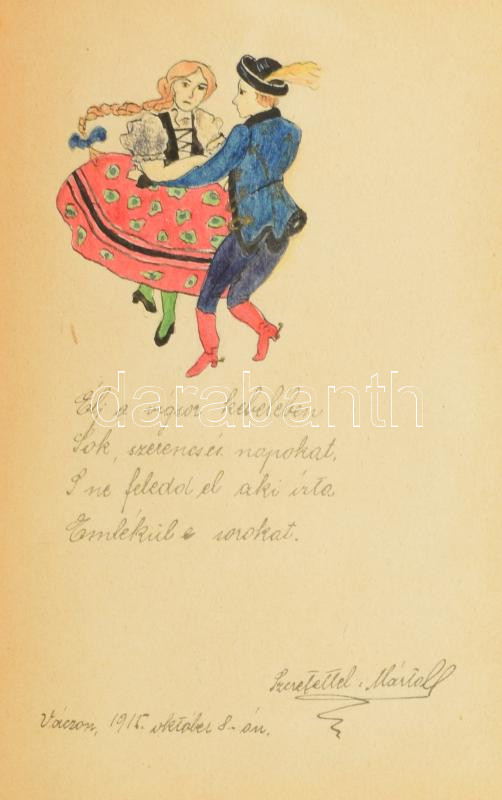 Élj a
kebelében
Sok, szerencsés napokat,
S ne feledd el aki írta
Emlékül e sorokat.
Szeretettel: Márta
Váczon, 1915. október 8-án.
darabanth